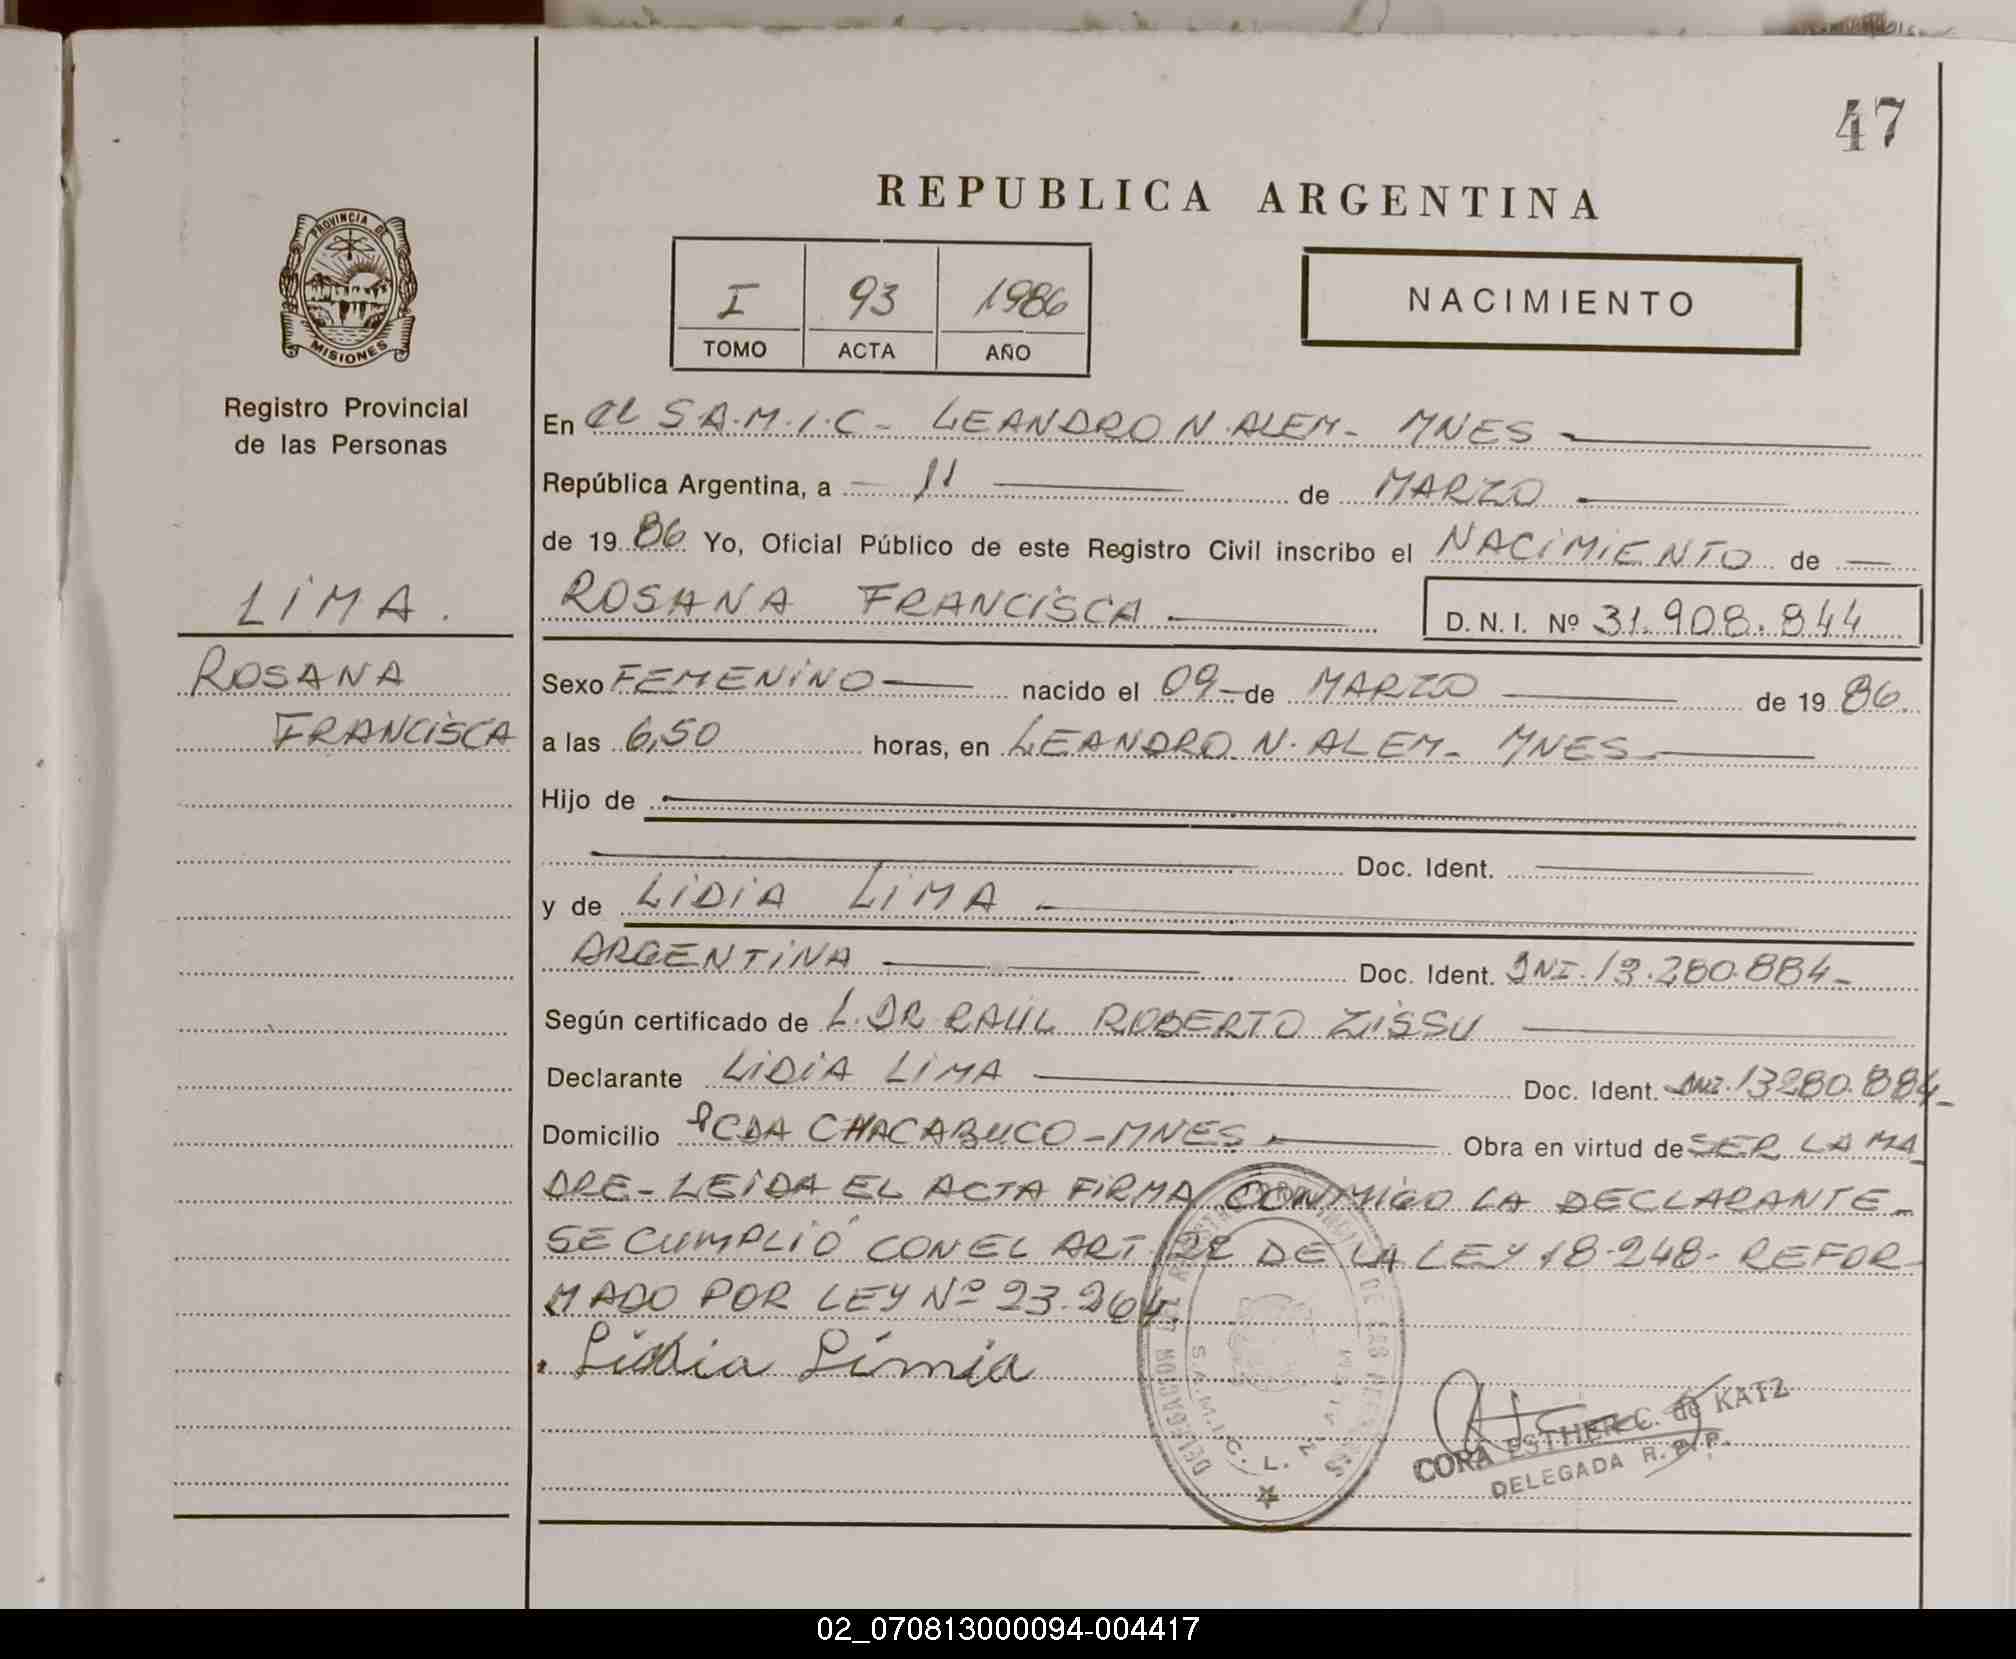 47
REPUBLICA ARGENTINA
PROVINCIA DE
MISIONES
I 93 1986
TOMO ACTA AÑO
NACIMIENTO
Registro Provincial
de las Personas
LIMA.
ROSANA
FRANCISCA
En el S.A.M.I.C - LEANDRO N. ALEM - MNES
República Argentina, a - 11 de MARZO
de 1986 Yo, Oficial Público de este Registro Civil inscribo el NACIMIENTO de
ROSANA FRANCISCA D. N. I. Nº 31.908.844
Sexo FEMENINO nacido el 09 - de MARZO de 1986.
a las 6,50 horas, en LEANDRO N. ALEM - MNES
Hijo de
Doc. Ident.
y de LIDIA LIMA
ARGENTINA Doc. Ident. DNI. 13.280.884-
Según certificado de L. DR RAUL ROBERTO ZISSU
Declarante LIDIA LIMA Doc. Ident. DNI. 13280.884-
Domicilio PCDA CHACABUCO - MNES. Obra en virtud de SER LA MA
DRE - LEIDA EL ACTA FIRMA CONMIGO LA DECLARANTE -
SE CUMPLIÓ CON EL ART. DE LA LEY 18.248 - REFOR-
MADO POR LEY Nº 23.264.
Lidia Lima
S.A.M.I.C. L.
CORA ESTHER C. de KATZ
DELEGADA R.P.P.
02_070813000094-004417